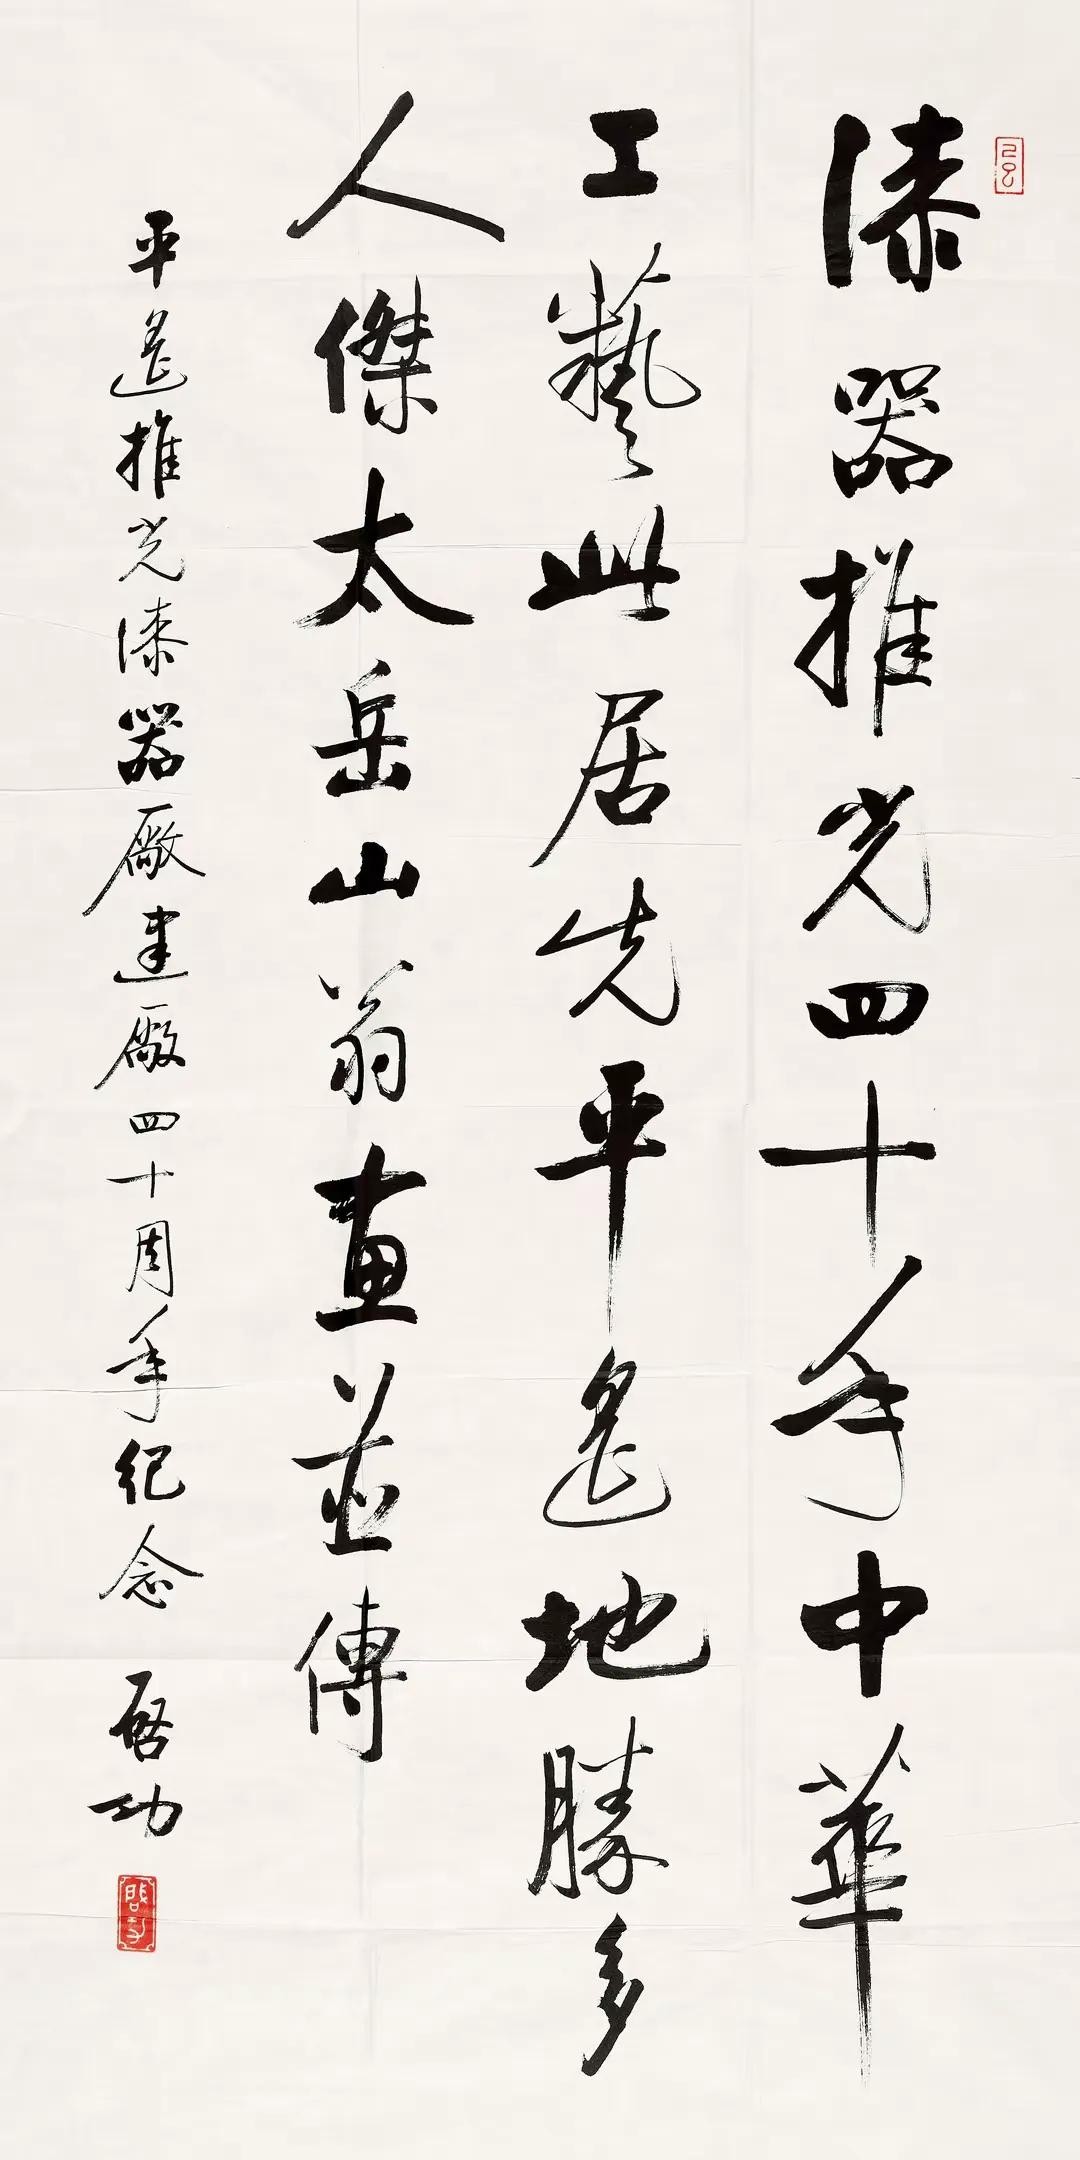 漆器推光四十年中華
工藝此居先平遙地勝多
人傑太岳山翁畫並傳
平遙推光漆器廠建廠四十周年紀念 啓功